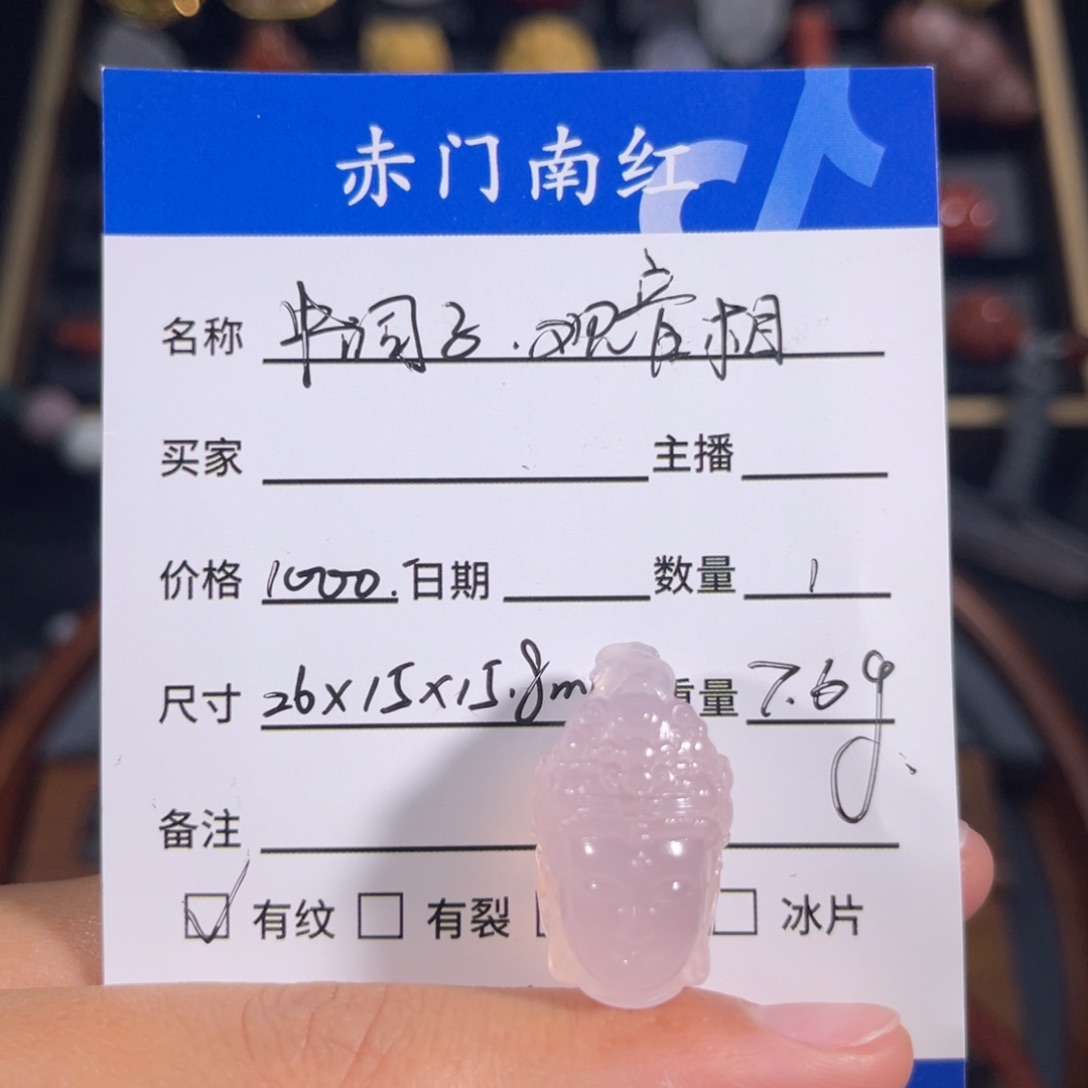 赤门南红
名称 观音相
买家 主播
价格 1000. 日期 数量 1
尺寸 26×15×15.8m 重量 7.6g
备注
有纹 有裂 冰片